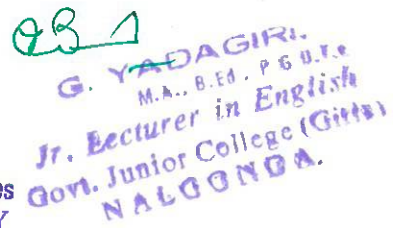 G. YADAGIRI.
M.A., B.Ed., P G D.T.e
Jr. Lecturer in English
Govt. Junior College (Girls)
NALGONDA.
es
Y